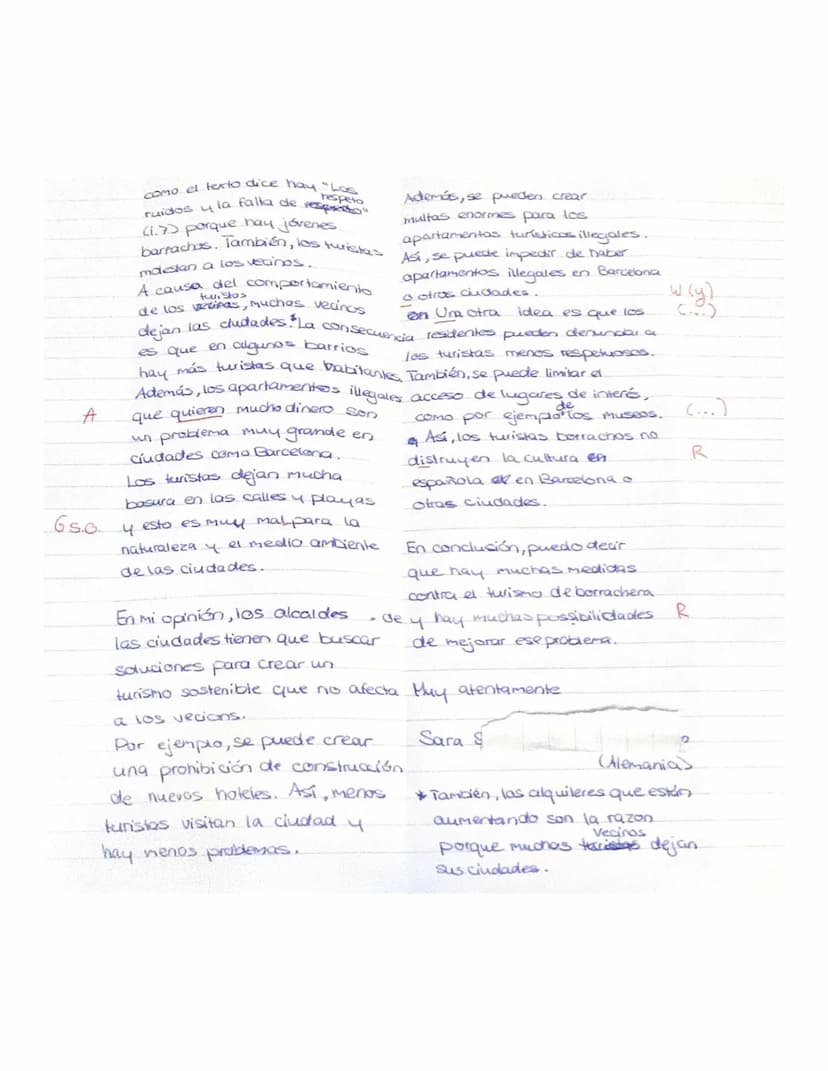 como el texto dice hay "Los
ruidos y la falta de respeto"
(l.7) porque hay jóvenes
barrachos. También, los turistas
molestan a los vecinos.
A causa del comportamiento
de los turistas, muchos vecinos
dejan las ciudades.* La consecuencia
es que en algunos barrios
hay más turistas que habitantes.
Además, los apartamentos illegales
A que quieren mucho dinero son
un problema muy grande en
ciudades como Barcelona.
Los turistas dejan mucha
basura en las calles y playas
GSO. y esto es muy mal para la
naturaleza y el medio ambiente
de las ciudades.
En mi opinión, los alcaldes de
las ciudades tienen que buscar
soluciones para crear un
turismo sostenible que no afecta
a los vecions.
Por ejemplo, se puede crear
una prohibición de construcción
de nuevos hoteles. Así, menos
turistas visitan la ciudad y
hay menos problemas.
Además, se pueden crear
multas enormes para los
apartamentos turísticos illegales.
Así, se puede impedir de haber
apartamentos illegales en Barcelona
o otros ciudades. W (y)
Una otra idea es que los (...)
residentes pueden denunciar a
los turistas menos respetuosos.
También, se puede limitar el
acceso de lugares de interés,
como por ejemplo de los museos. (...)
Así, los turistas borrachos no
distruyen la cultura R
española en Barcelona o
otras ciudades.
En conclusión, puedo decir
que hay muchas medidas
contra el turismo de borrachera
y hay muchas possibilidades R
de mejorar ese problema.
Muy atentamente
Sara S
(Alemania)
* También, las alquileres que están
aumentando son la razon
porque muchos vecinos dejan
sus ciudades.